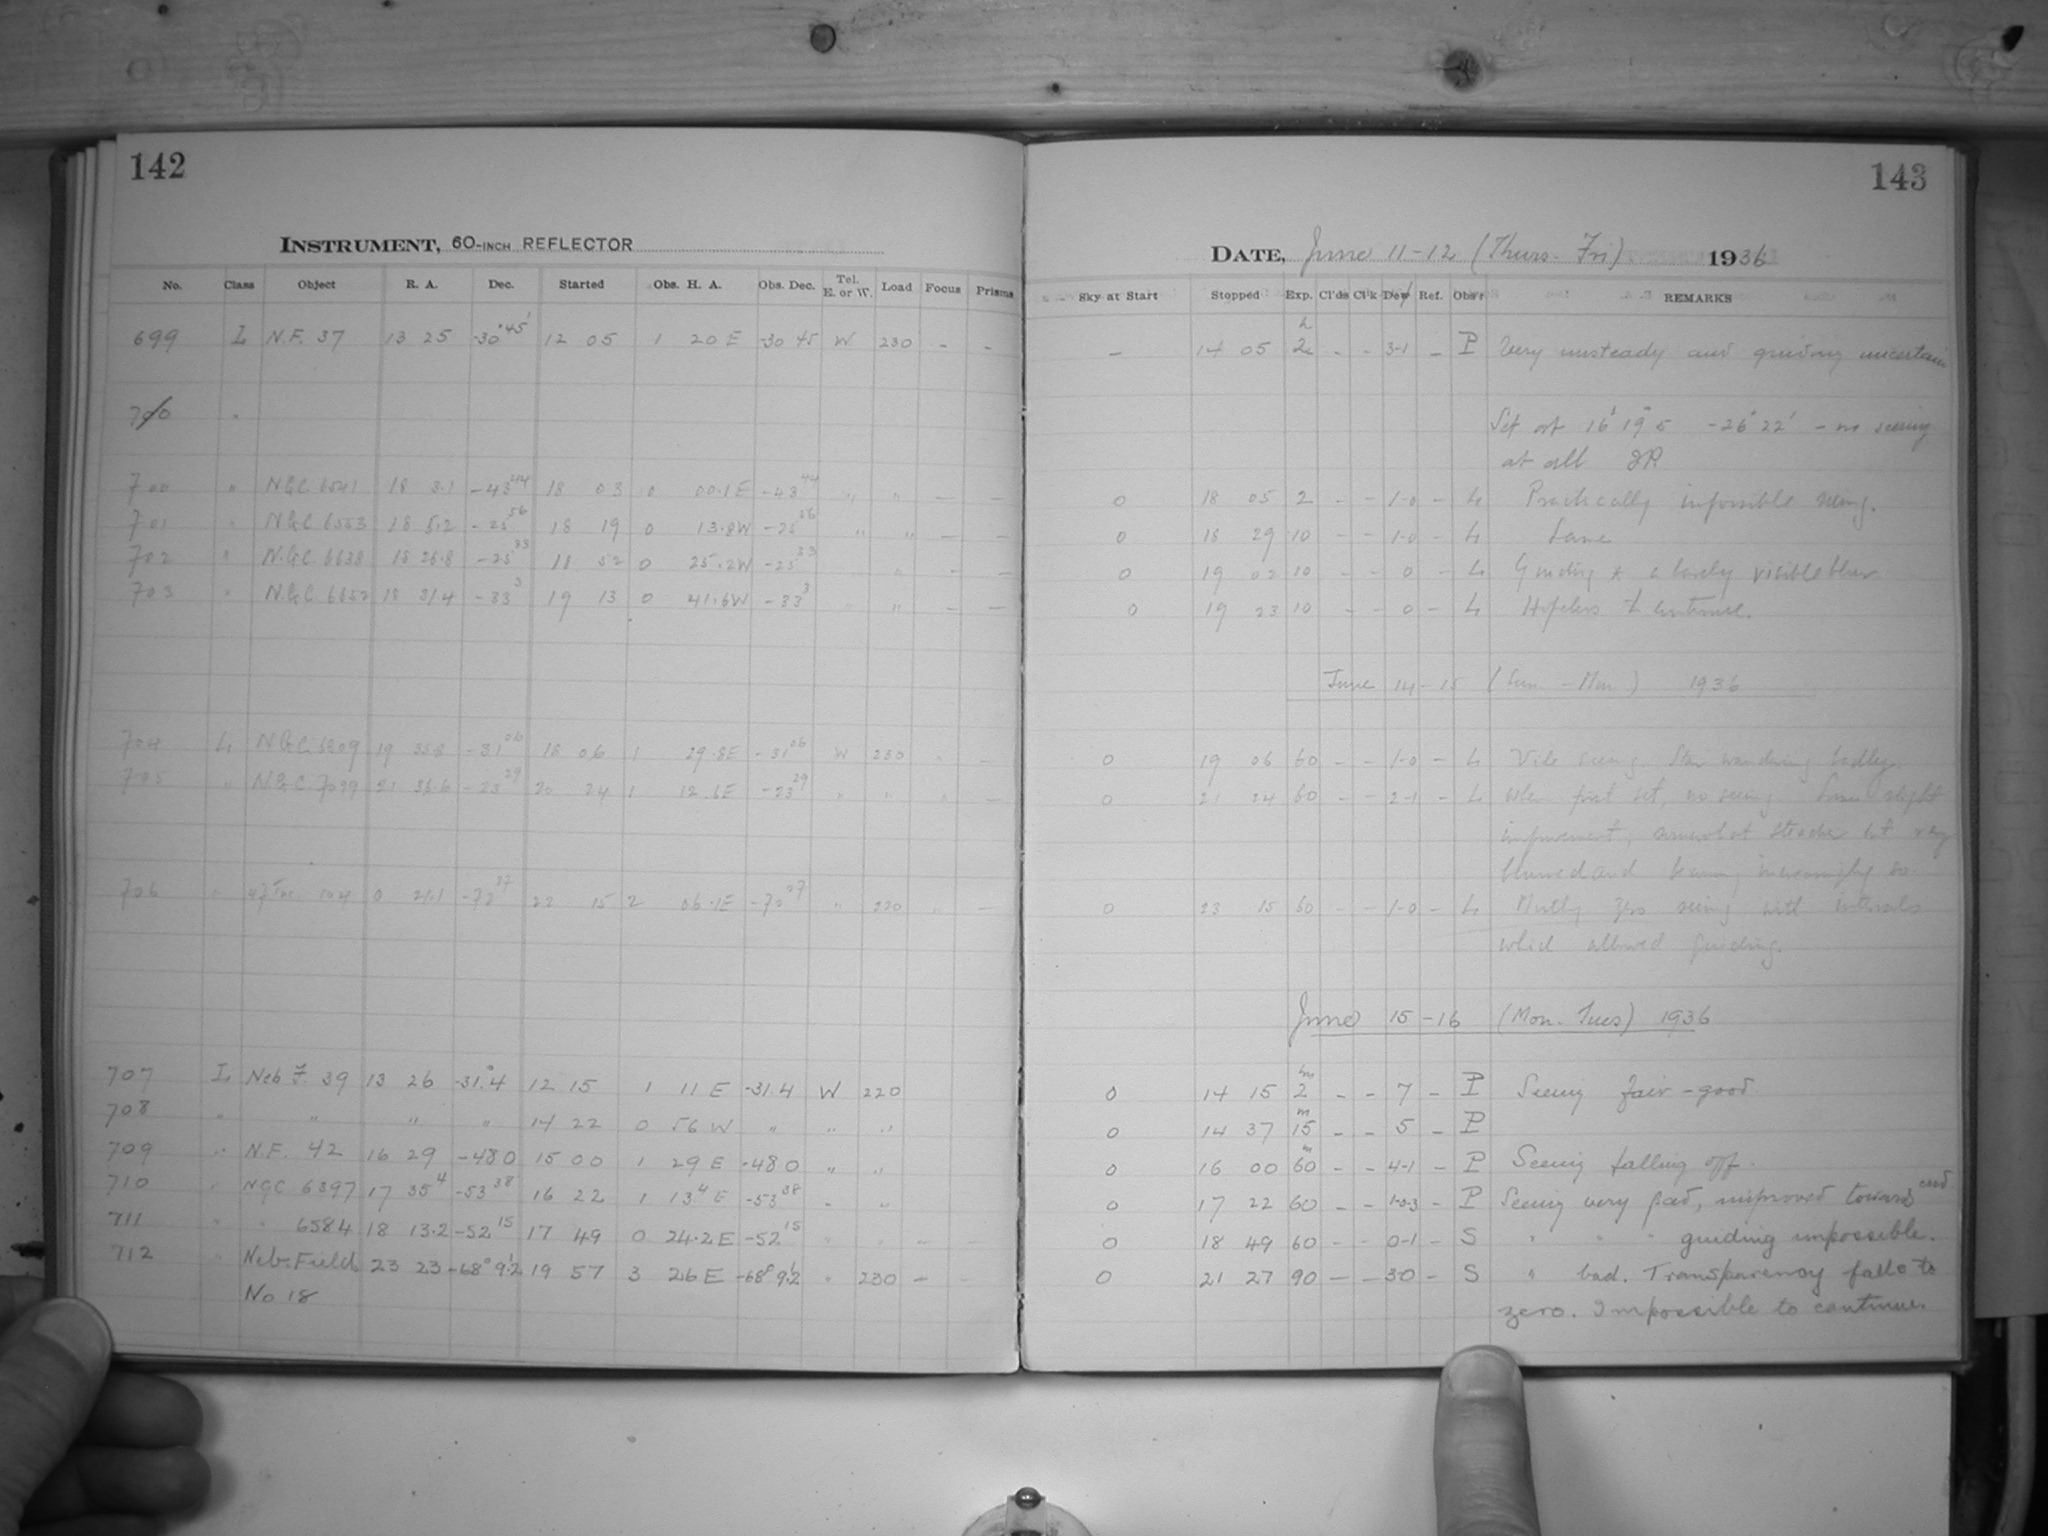 142
INSTRUMENT, 60-INCH REFLECTOR
No. Class Object R. A. Dec. Started Obs. H. A. Obs. Dec. Tel. E. or W. Load Focus Prisms
699 L N.F. 37 13 25 -30° 45' 12 05 1 20 E -30 45 W 230 - -
700 "
700 " NGC 6541 18 3.1 -43 44 18 03 0 00.1 E -43 44 " " - -
701 " NGC 6553 18 5.2 -25 56 18 19 0 13.8W -25 56 " " - -
702 " N.G.C. 6638 18 26.8 -25 33 18 52 0 25.2W -25 33 " - -
703 " N.G.C. 6652 18 31.4 -33 3 19 13 0 41.6W -33 3 " " - -
704 L NGC 6809 19 35.8 -31 06 18 06 1 29.8E -31 06 W 230 " -
705 " N.G.C. 7099 21 36.6 -23 29 20 24 1 12.6E -23 29 " " " -
706 " 47 Tuc. 104 0 21.1 -72 22 15 2 06.1E -72 " 220 " -
707 L Neb F. 39 13 26 -31°.4 12 15 1 11 E -31.4 W 220
708 " " " " 14 22 0 56 W " " "
709 " N.F. 42 16 29 -48 0 15 00 1 29 E -48 0 " "
710 " NGC 6397 17 35 4 -53 38 16 22 1 13 4 E -53 38 " "
711 " " 6584 18 13.2 -52 15 17 49 0 24.2 E -52 15 " " - -
712 " Neb. Field 23 23 -68° 9'.2 19 57 3 26 E -68° 9'.2 " 230 - -
No 18
143
DATE, June 11-12 (Thurs. Fri) 1936
Sky at Start Stopped Exp. Cl'ds Cl'k Dew Ref. Obs'r REMARKS
- 14 05 2h - - 3-1 - P Very unsteady and guiding uncertain
Set at 16h 19m 5 -26° 22' - no seeing
at all JP.
0 18 05 2 - - 1-0 - L Practically impossible seeing.
0 18 29 10 - - 1-0 - L Same
0 19 02 10 - - 0 - L Guiding * a barely visible blur
0 19 23 10 - - 0 - L Hopeless to continue.
June 14-15 (Sun - Mon) 1936
0 19 06 60 - - 1-0 - L Vile seeing. Star wandering badly.
0 21 24 60 - - 2-1 - L When first set, no seeing. Some slight
improvement, somewhat steadier but very
blurred and becoming increasingly so.
0 23 15 60 - - 1-0 - L Mostly zero seeing with intervals
which allowed guiding.
June 15-16 (Mon. Tues) 1936
0 14 15 2h - - 7 - P Seeing fair-good.
0 14 37 15m - - 5 - P
0 16 00 60m - - 4-1 - P Seeing falling off.
0 17 22 60 - - 1-0-3 - P Seeing very bad, improved towards end
0 18 49 60 - - 0-1 - S " " " guiding impossible.
0 21 27 90 - - 3-0 - S " bad. Transparency falls to
zero. Impossible to continue.